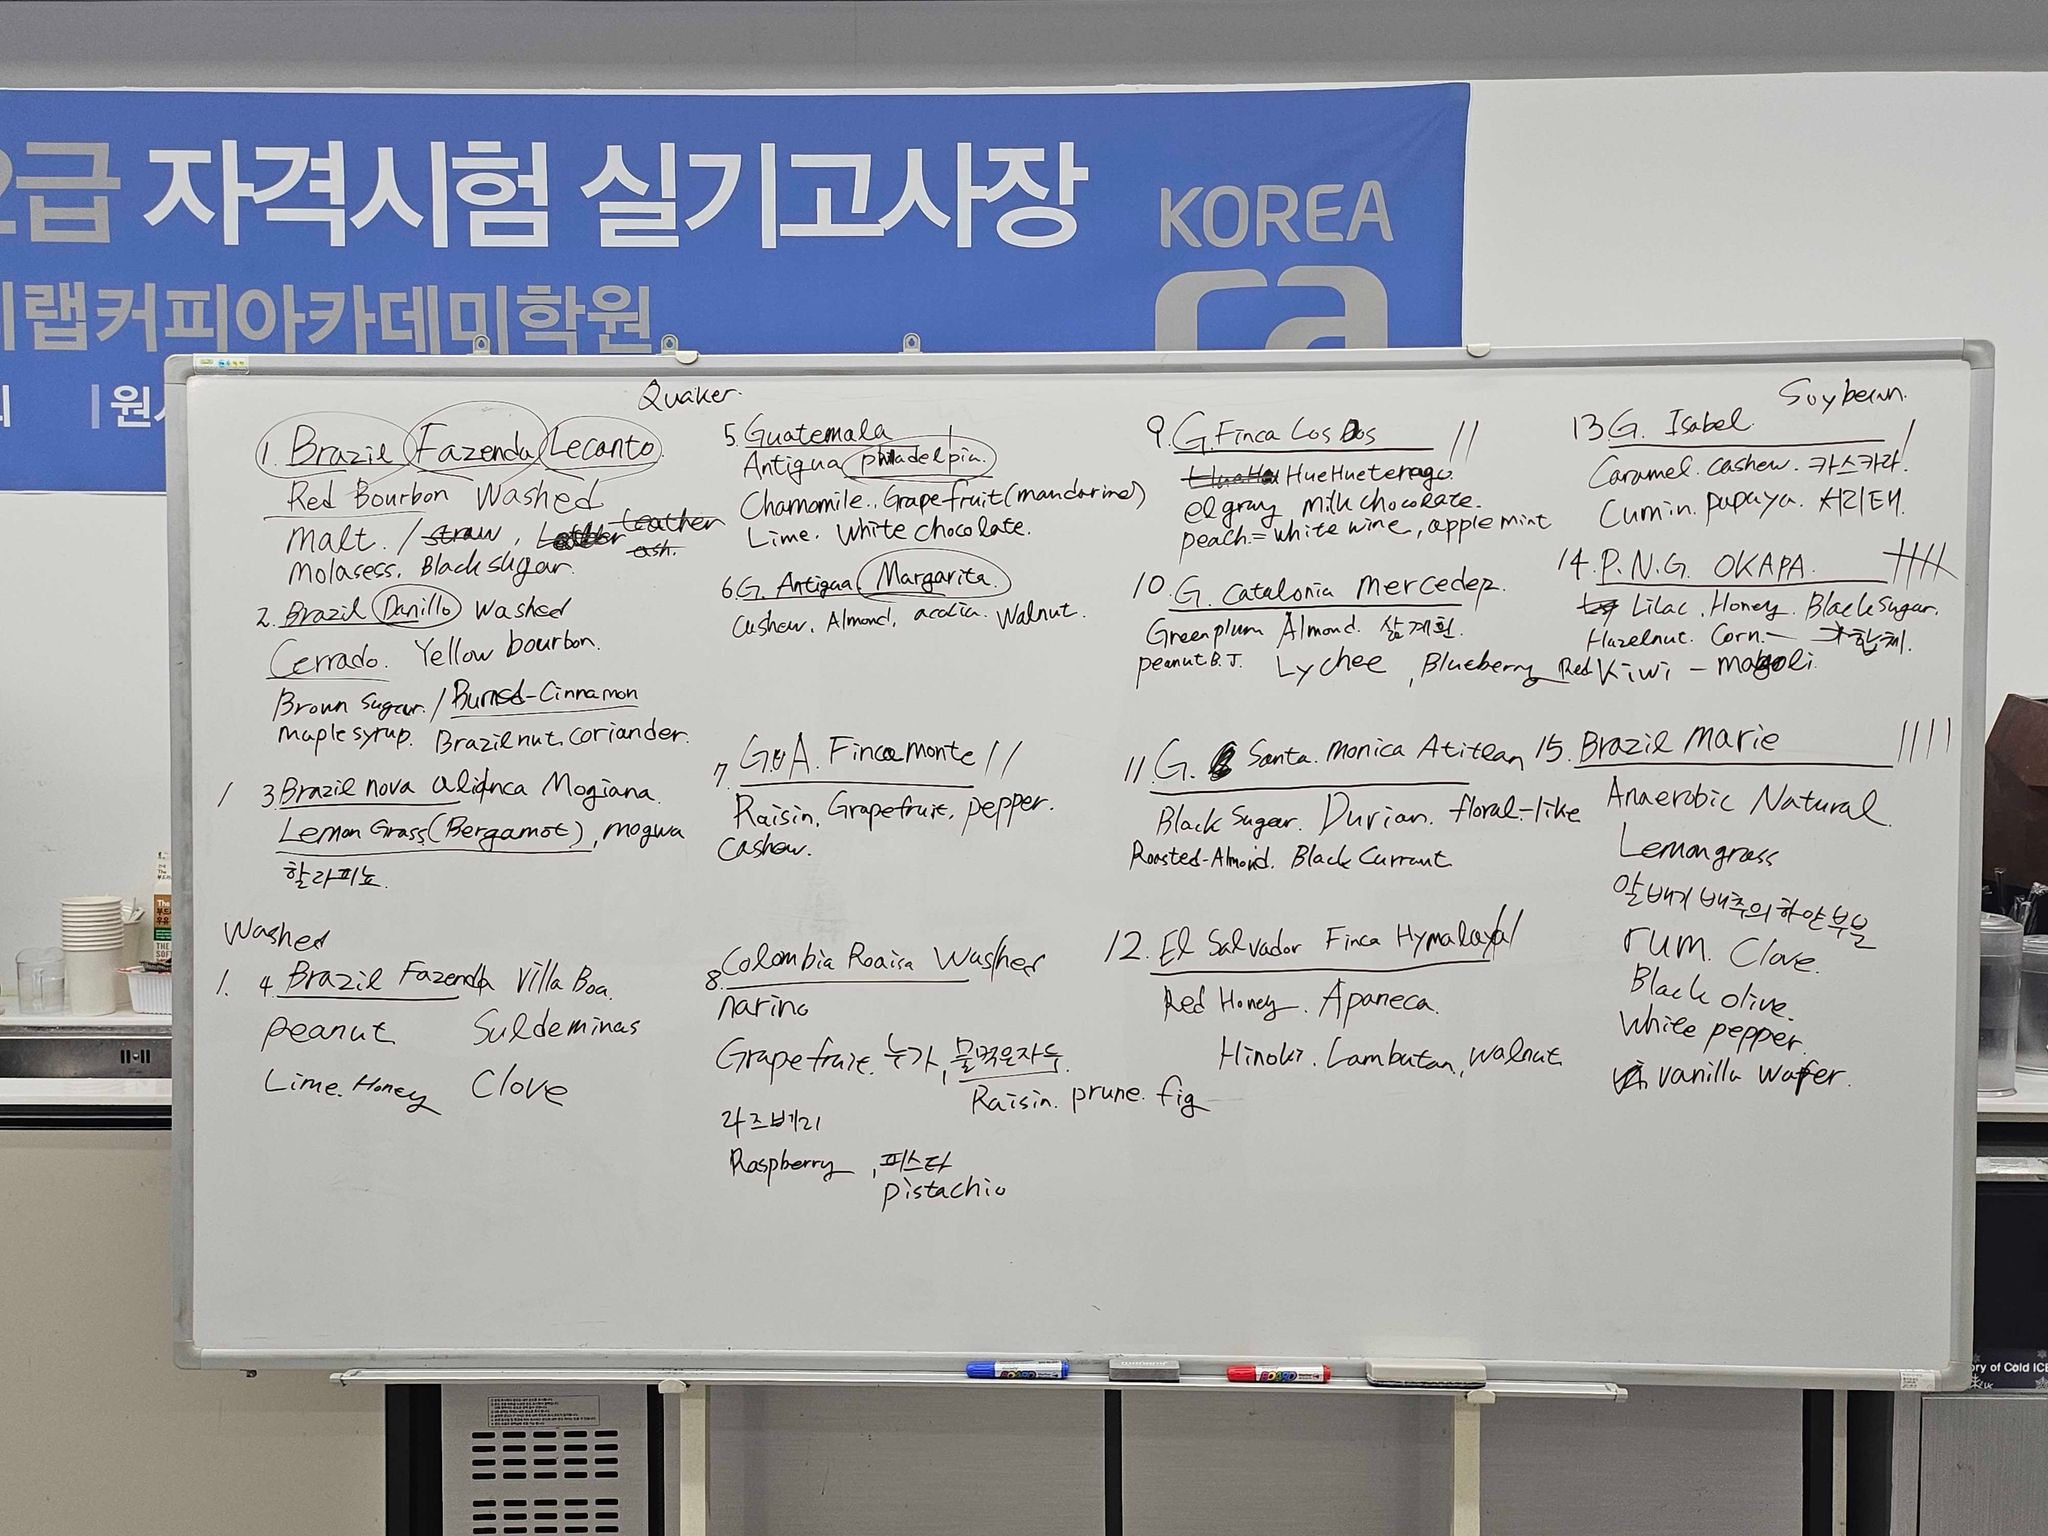 2급 자격시험 실기고사장
KOREA
ca
랩커피아카데미학원
원
Quaker.
1. Brazil Fazenda Lecanto
Red Bourbon Washed
Malt. / straw, Leather
ash.
Molasess. Black sugar.
2. Brazil Danillo Washed
Cerrado. Yellow bourbon.
Brown Sugar. / Burned-Cinnamon
maple syrup. Brazilnut. coriander.
/ 3. Brazil nova alianca Mogiana.
Lemon Grass (Bergamot), mogwa
할라피뇨.
Washed
1. 4. Brazil Fazenda Villa Boa.
peanut Suldeminas
Lime. Honey Clove
5. Guatemala
Antigua philadelpia.
Chamomile. Grapefruit (mandarine)
Lime. White chocolate.
6. G. Antigua Margarita.
Cashew. Almond, acacia. Walnut.
7. G. A. Finca monte //
Raisin. Grapefruit. pepper.
Cashew.
8. Colombia Roaisa Washed
narino
Grapefruit. 누가, 물먹은자두.
Raisin. prune. fig
라즈베리
Raspberry, 피스타
pistachio
9. G. Finca Los Dos //
HueHuetenago.
el gray milk chocolate.
peach = white wine, apple mint
10. G. Catalonia mercedez.
Green plum Almond. 삼계환.
peanut B.J. Lychee, Blueberry Red Kiwi - magoli.
11. G. Santa. monica Atitlan
Black Sugar. Durian. floral-like
Roasted-Almond. Black Currant
12. El Salvador Finca Hymalaya //
Red Honey. Apaneca.
Hinoki. Lambutan, walnut
Soybean.
13. G. Isabel. /
Caramel. cashew. 카스카라.
Cumin. papaya. 서리태
14. P.N.G. OKAPA. ////
Lilac. Honey. Black sugar.
Hazelnut. Corn.
15. Brazil Marie ////
Anaerobic Natural.
Lemongrass
알배기 배추의 하얀부분
rum. Clove.
Black olive.
white pepper.
vanilla wafer.
BOARD
BOARD
ory of Cold ICE